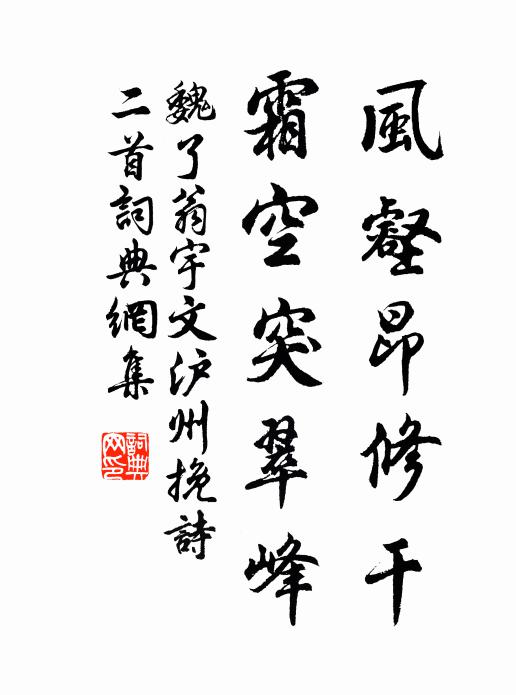 風壑昂修干
霜空突翠峰
魏了翁宇文沪州挽詩
二首詞典網集
詞典网印